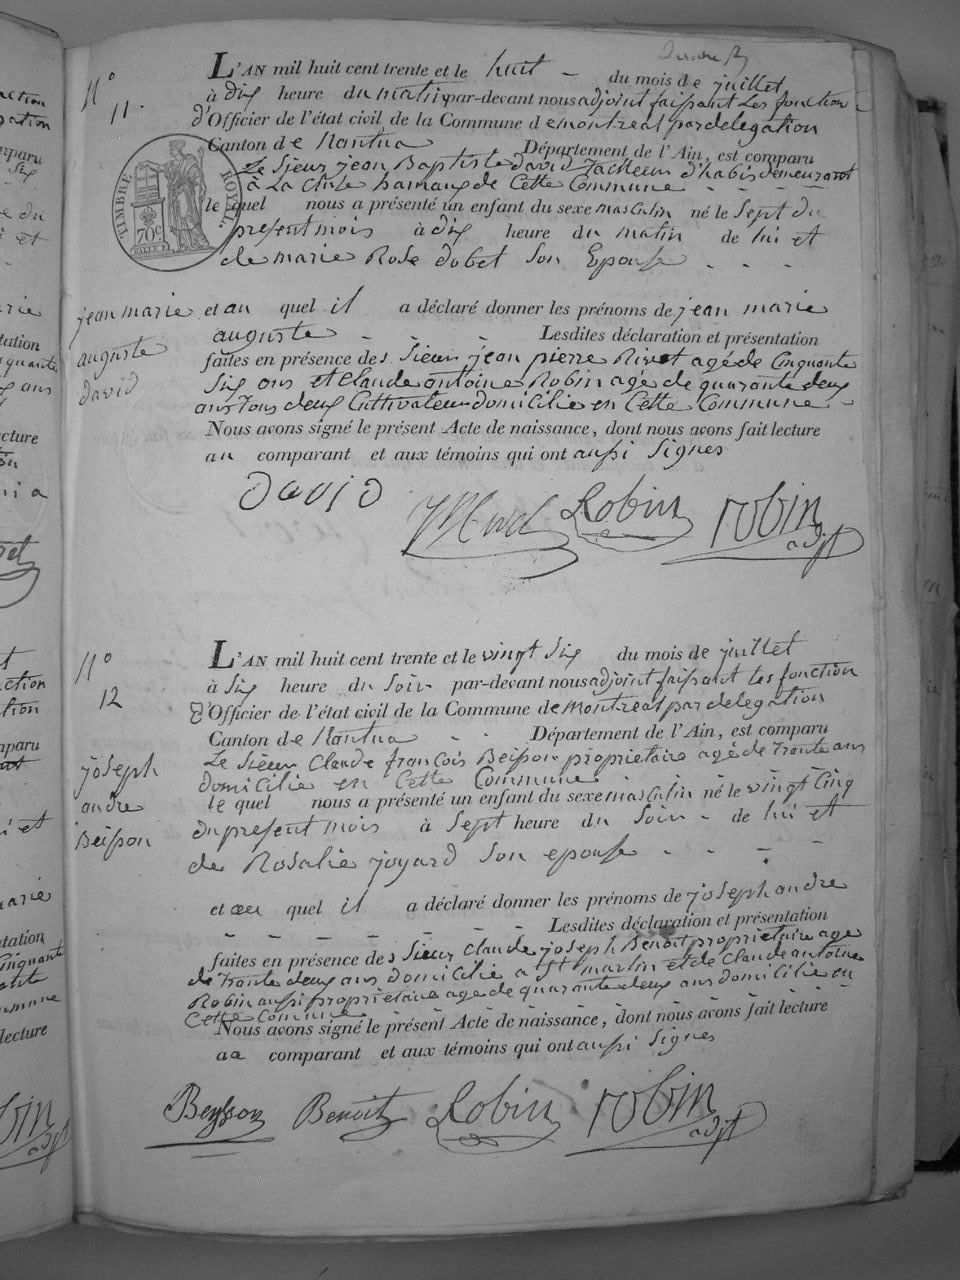 N° 11.
L'AN mil huit cent trente et le huit - du mois de juillet
à dix heure du matin par-devant nous adjoint faisant les fonction
d'Officier de l'état civil de la Commune de montreal par delegation
Canton de Nantua Département de l'Ain, est comparu
Le Sieur jean Baptiste david tailleur d'habis demeurant
à La Cluse hameaux de Cette Commune
le quel nous a présenté un enfant du sexe masculin né le Sept du
present mois à dix heure du matin de lui et
de marie Rose dubet Son Epouse
TIMBRE ROYAL
70c
jean marie
auguste
david
et au quel il a déclaré donner les prénoms de jean marie
auguste Lesdites déclaration et présentation
faites en présence des Sieur jean pierre Rivet agé de Cinquante
Six ans et Claude antoine Robin agé de quarante deux
ans tous deux Cultivateur domicilie en Cette Commune
Nous avons signé le présent Acte de naissance, dont nous avons fait lecture
au comparant et aux témoins qui ont aussi Signes
David
Robin robin adjt
N° 12
L'AN mil huit cent trente et le vingt Six du mois de juillet
à Six heure du Soir par-devant nous adjoint faisant les fonction
d'Officier de l'état civil de la Commune de montreal par delegation
Canton de Nantua - - Département de l'Ain, est comparu
Le Sieur Claude françois Beisson proprietaire agé de trente ans
domicilie en Cette Commune
le quel nous a présenté un enfant du sexe masculin né le vingt Cinq
du present mois à Sept heure du Soir - de lui et
de Rosalie joyard Son epouse
joseph
andre
Beisson
et au quel il a déclaré donner les prénoms de joseph andre
Lesdites déclaration et présentation
faites en présence des Sieur Claude joseph Benoit proprietaire age
de trente deux ans domicilie a St martin et de Claude antoine
Robin aussi proprietaire age de quarante deux ans domicilie en
Cette Commune
Nous avons signé le présent Acte de naissance, dont nous avons fait lecture
au comparant et aux témoins qui ont aussi Signes
Beysson Benoit Robin robin adjt